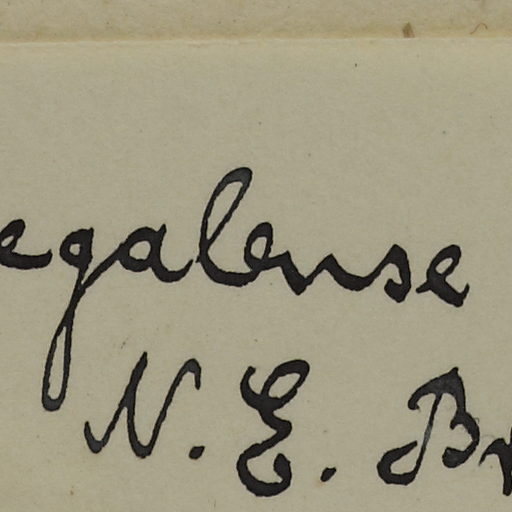 egalense
N. E. Br